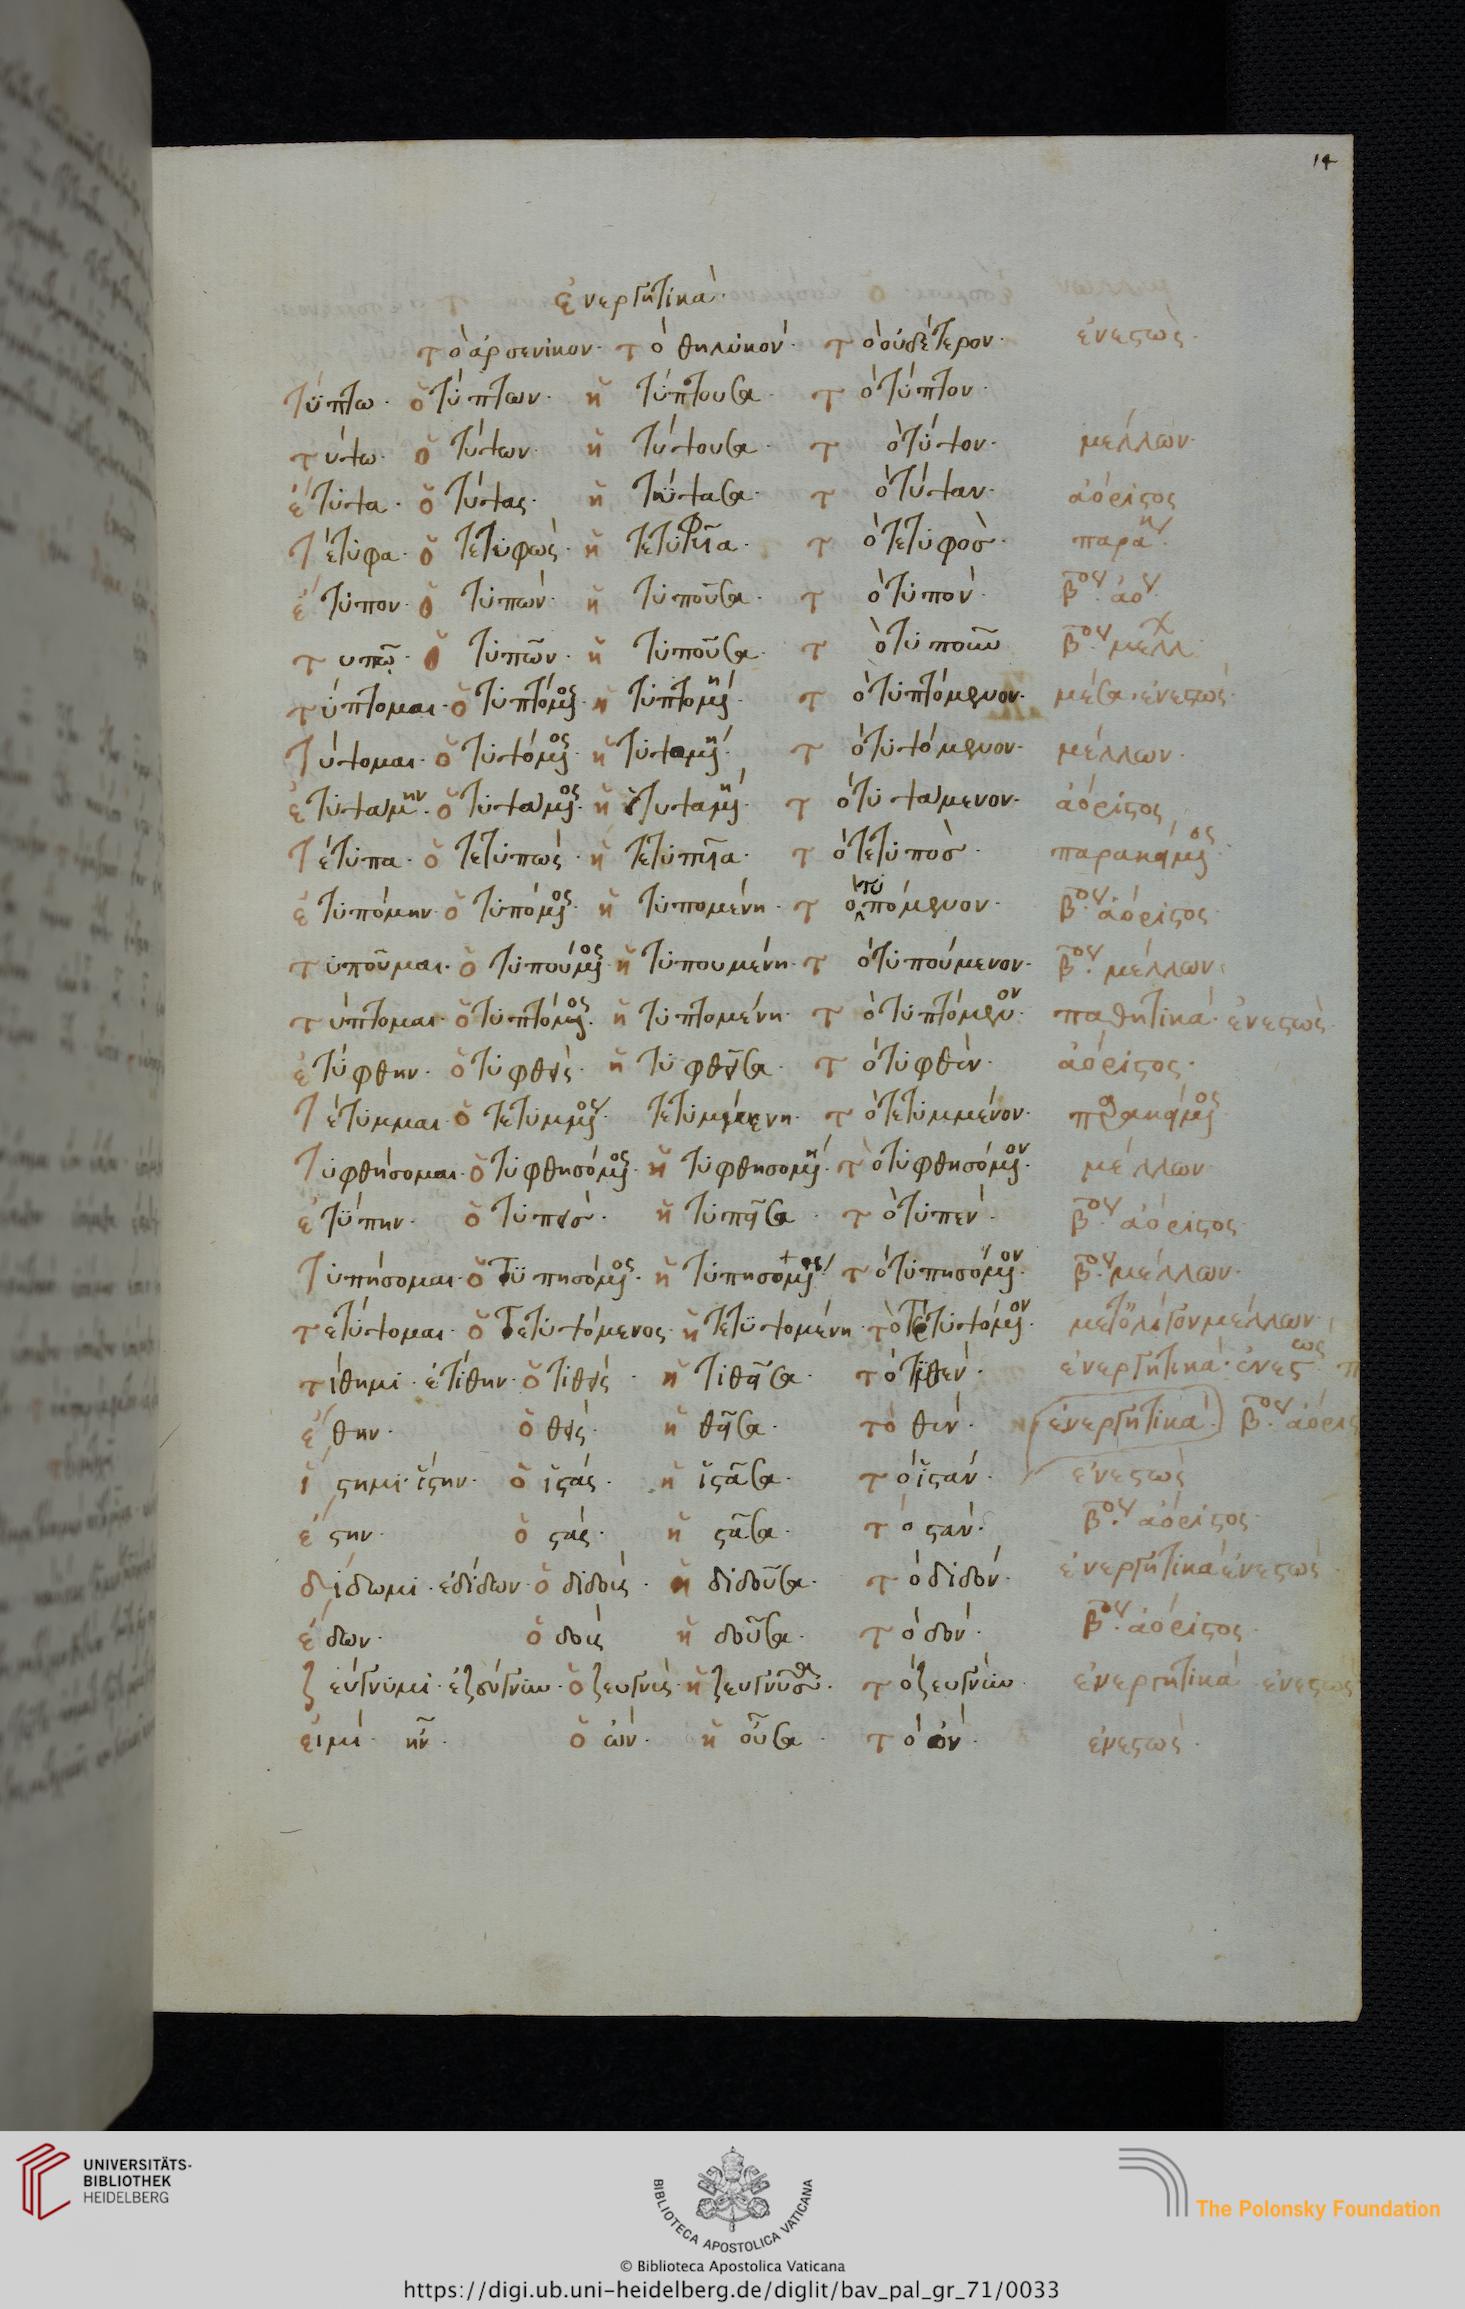 14
ἐνεργητικά·
τὸ ἀρσενικον· τὸ θηλυκον· τὸ οὐδέτερον· ἐνεστώς·
τύπτω· ὁ τύπτων· ἡ τύπτουσα· τὸ τύπτον·
τύψω· ὁ τύψων· ἡ τύψουσα· τὸ τύψον· μέλλων·
ἔτυψα· ὁ τύψας· ἡ τύψασα· τὸ τύψαν· ἀόριστος
τέτυφα· ὁ τετυφώς· ἡ τετυφυῖα· τὸ τετυφός· παρακ
ἔτυπον· ὁ τυπών· ἡ τυποῦσα· τὸ τυπόν· βου· ἀο
τυπῶ· ὁ τυπῶν· ἡ τυποῦσα· τὸ τυποῦν βου· μελλ
τύπτομαι· ὁ τυπτόμενος· ἡ τυπτομένη· τὸ τυπτόμενον· μέσα· ἐνεστώς·
τύψομαι· ὁ τυψόμενος· ἡ τυψομένη· τὸ τυψόμενον· μέλλων·
ἐτυψάμην· ὁ τυψάμενος· ἡ τυψαμένη· τὸ τυψάμενον· ἀόριστος
τέτυπα· ὁ τετυπώς· ἡ τετυπυῖα· τὸ τετυπός· παρακείμενος
ἐτυπόμην· ὁ τυπόμενος· ἡ τυπομένη· τὸ τυπόμενον· βου· ἀόριστος·
τυποῦμαι· ὁ τυπούμενος· ἡ τυπουμένη· τὸ τυπούμενον· βου· μέλλων·
τύπτομαι· ὁ τυπτόμενος· ἡ τυπτομένη· τὸ τυπτόμενον· παθητικά· ἐνεστώς·
ἐτύφθην· ὁ τυφθείς· ἡ τυφθεῖσα· τὸ τυφθέν· ἀόριστος·
τέτυμμαι· ὁ τετυμμένος· τετυμμένη· τὸ τετυμμένον· παρακείμενος
τυφθήσομαι· ὁ τυφθησόμενος· ἡ τυφθησομένη· τὸ τυφθησόμενον· μέλλων
ἐτύπην· ὁ τυπείς· ἡ τυπεῖσα· τὸ τυπέν· βου· ἀόριστος·
τυπήσομαι· ὁ τυπησόμενος· ἡ τυπησομένη· τὸ τυπησόμενον· βου· μέλλων·
τετύψομαι· ὁ τετυψόμενος· ἡ τετυψομένη· τὸ τετυψόμενον· μετ' ὀλίγον μέλλων·
τίθημι· ἐτίθην· ὁ τιθείς· ἡ τιθεῖσα· τὸ τιθέν· ἐνεργητικά· ἐνεστώς
ἔθην· ὁ θείς· ἡ θεῖσα· τὸ θέν· ἐνεργητικά· βου· ἀόρις
ἵστημι· ἵστην· ὁ ἱστάς· ἡ ἱστᾶσα· τὸ ἱστάν· ἐνεστώς
ἔστην· ὁ στάς· ἡ στᾶσα· τὸ στάν· βου· ἀόριστος·
δίδωμι· ἐδίδων· ὁ διδούς· ἡ διδοῦσα· τὸ διδόν· ἐνεργητικά ἐνεστώς·
ἔδων· ὁ δούς ἡ δοῦσα· τὸ δόν· βου· ἀόριστος·
ζεύγνυμι· ἐζεύγνυν· ὁ ζευγνύς· ἡ ζευγνῦσα· τὸ ζευγνύν· ἐνεργητικά ἐνεστώς
εἰμί· ἦν· ὁ ὤν· ἡ οὖσα· τὸ ὄν· ἐνεστώς·
UNIVERSITÄTS-
BIBLIOTHEK
HEIDELBERG
BIBLIOTECA APOSTOLICA VATICANA
The Polonsky Foundation
© Biblioteca Apostolica Vaticana
https://digi.ub.uni-heidelberg.de/diglit/bav_pal_gr_71/0033